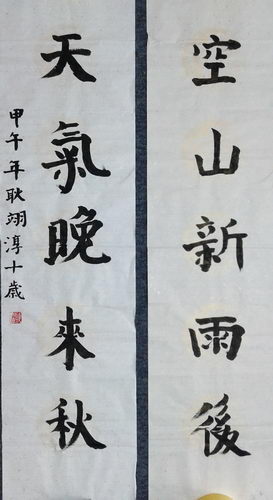 空山新雨後
天氣晚來秋
甲午年耿翊淳十歲